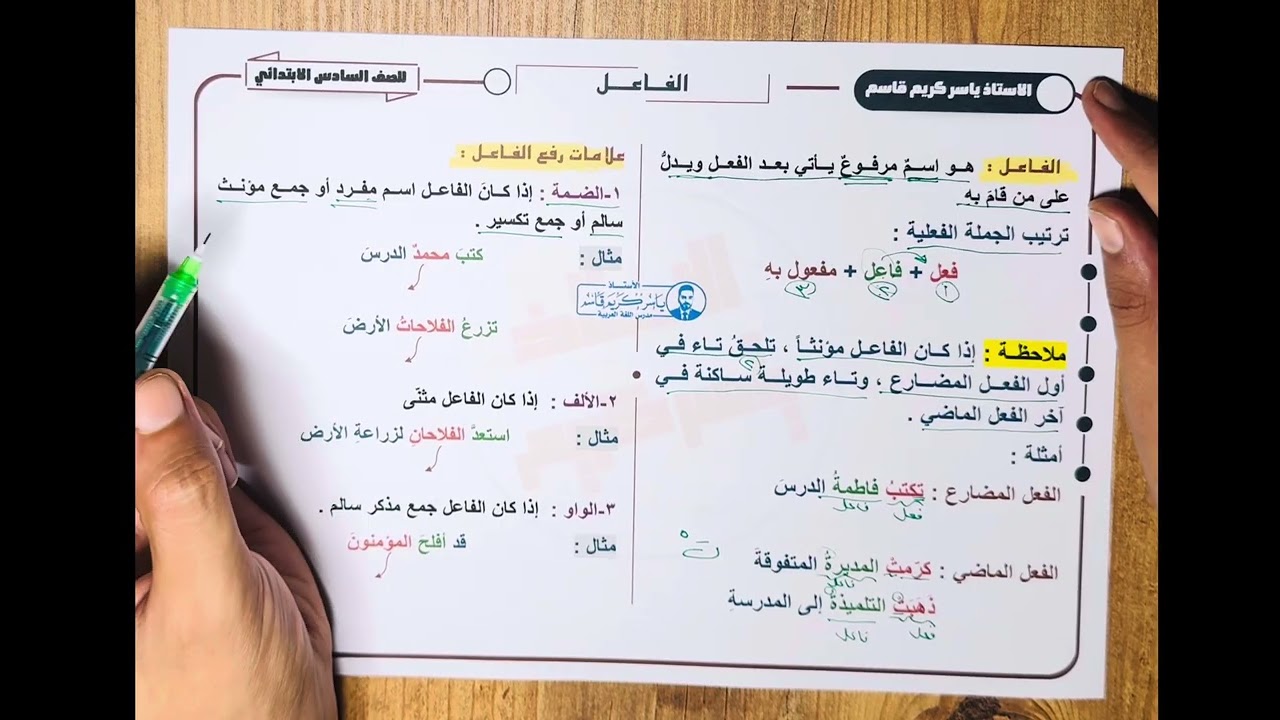 الاستاذ ياسر كريم قاسم
الفاعل
للصف السادس الابتدائي
الفاعل : هو اسمٌ مرفوعٌ يأتي بعد الفعل ويدلُّ
على من قامَ بهِ
ترتيب الجملة الفعلية :
فعل + فاعِل + مفعول بهِ
١ ٢ ٣
ملاحظة : إذا كان الفاعل مؤنثاً ، تلحقُ تاء في
أول الفعل المضارع ، وتاء طويلة ساكنة في
آخر الفعل الماضي .
أمثلة :
الفعل المضارع : تكتبُ فاطمةُ الدرسَ
فعل فاعل
تْ
الفعل الماضي : كرّمتْ المديرةُ المتفوقةَ
فاعل
ذَهَبَتِ التلميذةُ إلى المدرسةِ
فعل فاعل
الأستاذ
ياسر كريم قاسم
مدرس اللغة العربية
علامات رفع الفاعل :
١-الضمة : إذا كانَ الفاعل اسم مفردِ أو جمع مؤنث
سالم أو جمع تكسير .
مثال : كتبَ محمدٌ الدرسَ
تزرعُ الفلاحاتُ الأرضَ
٢-الألف : إذا كان الفاعل مثنّى
مثال : استعدَّ الفلاحانِ لزراعةِ الأرض
٣-الواو : إذا كان الفاعل جمع مذكر سالم .
مثال : قد أفلحَ المؤمنونَ